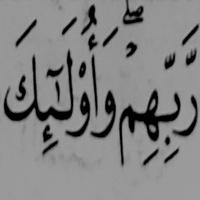 رَّبِّهِمْ ۖ وَأُوْلَٰٓئِكَ